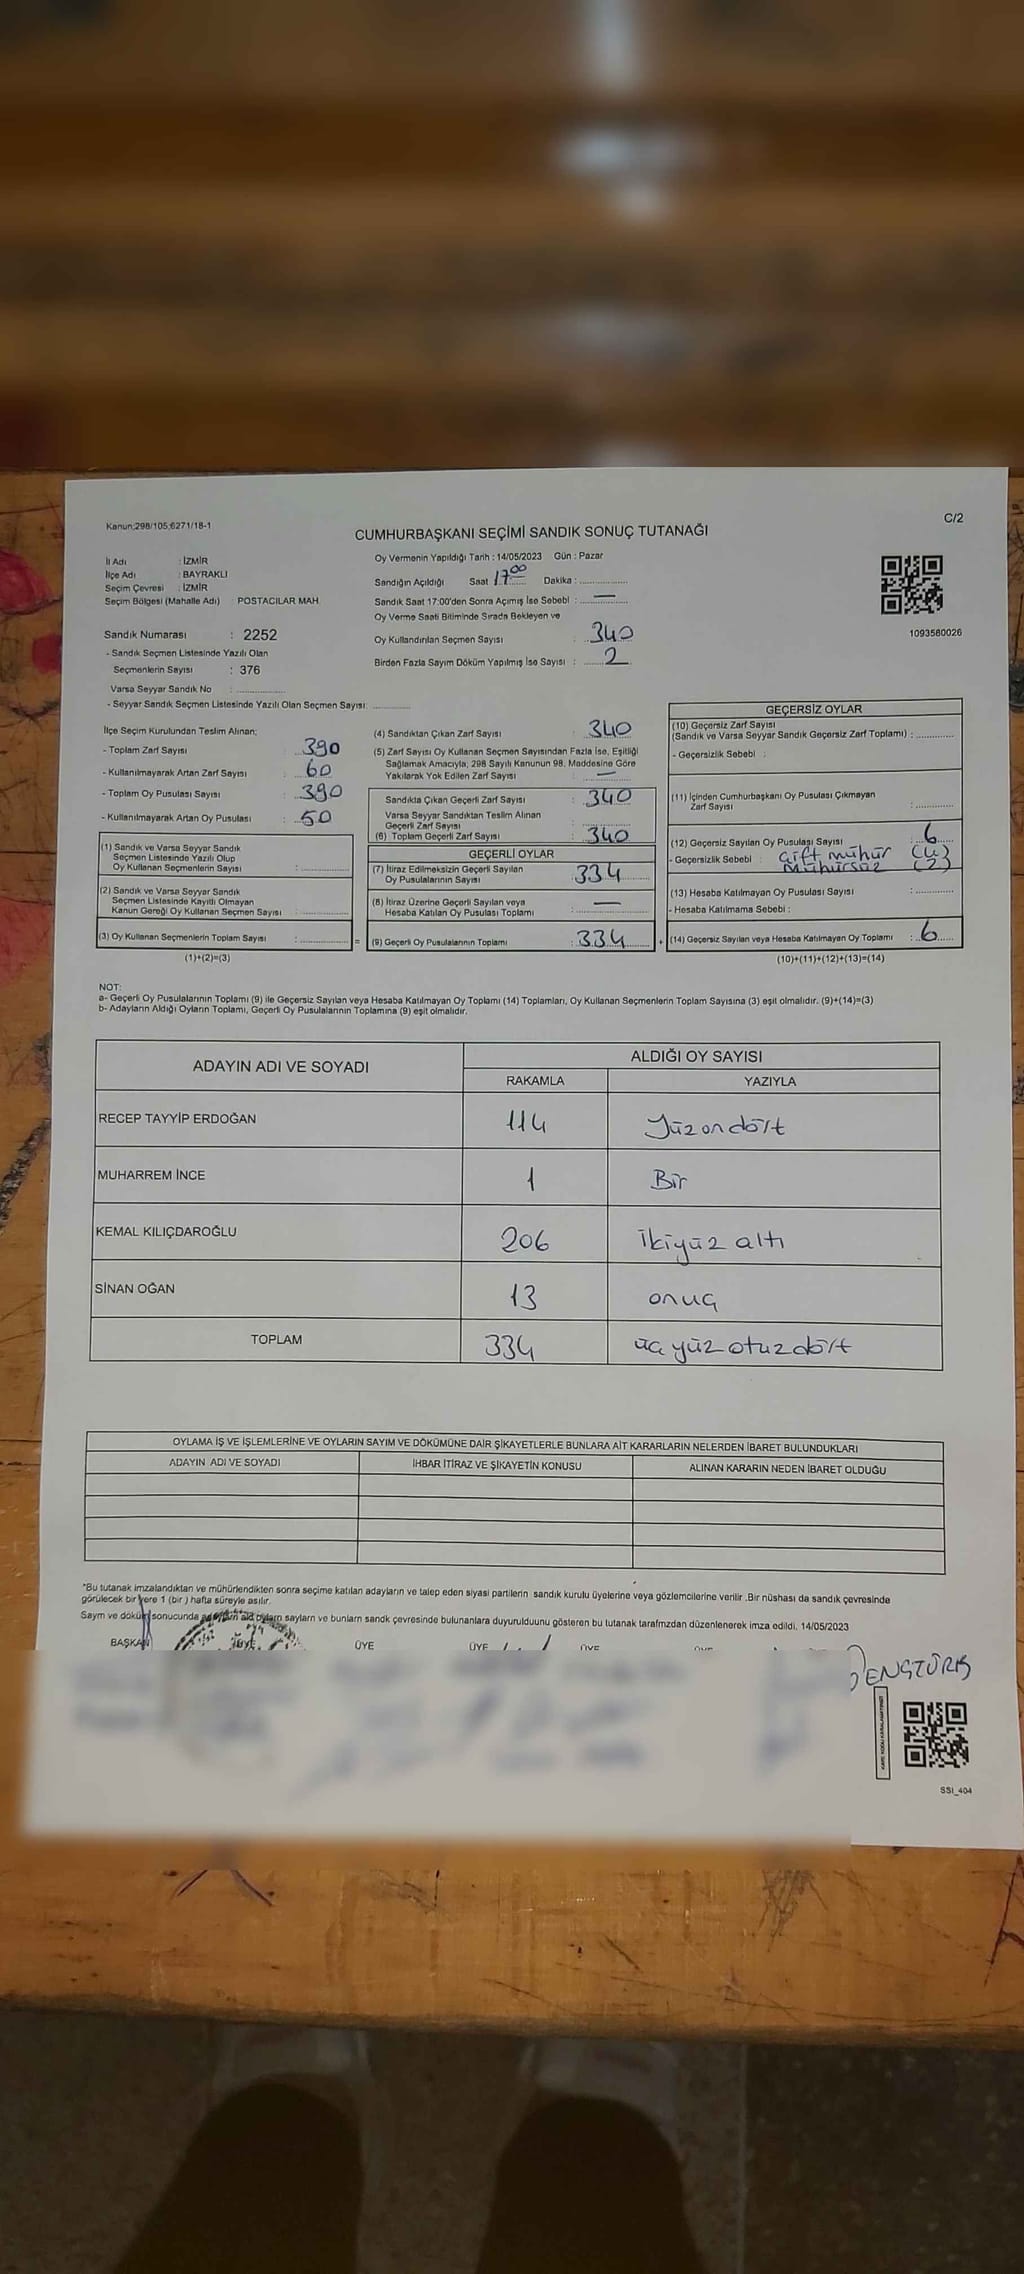 Kanun;298/105;6271/18-1
C/2
CUMHURBAŞKANI SEÇİMİ SANDIK SONUÇ TUTANAĞI
İl Adı : İZMİR
İlçe Adı : BAYRAKLI
Seçim Çevresi : İZMİR
Seçim Bölgesi (Mahalle Adı) : POSTACILAR MAH.
Sandık Numarası : 2252
- Sandık Seçmen Listesinde Yazılı Olan
Seçmenlerin Sayısı : 376
Varsa Seyyar Sandık No : ................
- Seyyar Sandık Seçmen Listesinde Yazılı Olan Seçmen Sayısı: ............
Oy Vermenin Yapıldığı Tarih : 14/05/2023 Gün : Pazar
Sandığın Açıldığı Saat 17:00 Dakika : ................
Sandık Saat 17:00'den Sonra Açımış İse Sebebi : —
Oy Verme Saati Bitiminde Sırada Bekleyen ve
Oy Kullandırılan Seçmen Sayısı : 340
Birden Fazla Sayım Döküm Yapılmış İse Sayısı : 2
1093580026
İlçe Seçim Kurulundan Teslim Alınan;
- Toplam Zarf Sayısı : 390
- Kullanılmayarak Artan Zarf Sayısı : 60
- Toplam Oy Pusulası Sayısı : 390
- Kullanılmayarak Artan Oy Pusulası : 50
(1) Sandık ve Varsa Seyyar Sandık
Seçmen Listesinde Yazılı Olup
Oy Kullanan Seçmenlerin Sayısı : ............
(2) Sandık ve Varsa Seyyar Sandık
Seçmen Listesinde Kayıtlı Olmayan
Kanun Gereği Oy Kullanan Seçmen Sayısı : ............
(3) Oy Kullanan Seçmenlerin Toplam Sayısı : ............ =
(1)+(2)=(3)
(4) Sandıktan Çıkan Zarf Sayısı : 340
(5) Zarf Sayısı Oy Kullanan Seçmen Sayısından Fazla İse, Eşitliği
Sağlamak Amacıyla, 298 Sayılı Kanunun 98. Maddesine Göre
Yakılarak Yok Edilen Zarf Sayısı : —
Sandıkta Çıkan Geçerli Zarf Sayısı : 340
Varsa Seyyar Sandıktan Teslim Alınan
Geçerli Zarf Sayısı
(6) Toplam Geçerli Zarf Sayısı : 340
GEÇERLİ OYLAR
(7) İtiraz Edilmeksizin Geçerli Sayılan
Oy Pusulalarının Sayısı : 334
(8) İtiraz Üzerine Geçerli Sayılan veya
Hesaba Katılan Oy Pusulası Toplamı : —
(9) Geçerli Oy Pusulalarının Toplamı : 334 +
GEÇERSİZ OYLAR
(10) Geçersiz Zarf Sayısı
(Sandık ve Varsa Seyyar Sandık Geçersiz Zarf Toplamı) : ............
- Geçersizlik Sebebi :
(11) İçinden Cumhurbaşkanı Oy Pusulası Çıkmayan
Zarf Sayısı : ............
(12) Geçersiz Sayılan Oy Pusulası Sayısı : 6
- Geçersizlik Sebebi : Çift mühür (4)
Mühürsüz (2)
(13) Hesaba Katılmayan Oy Pusulası Sayısı : ............
- Hesaba Katılmama Sebebi :
(14) Geçersiz Sayılan veya Hesaba Katılmayan Oy Toplamı : 6
(10)+(11)+(12)+(13)=(14)
NOT:
a- Geçerli Oy Pusulalarının Toplamı (9) ile Geçersiz Sayılan veya Hesaba Katılmayan Oy Toplamı (14) Toplamları, Oy Kullanan Seçmenlerin Toplam Sayısına (3) eşit olmalıdır. (9)+(14)=(3)
b- Adayların Aldığı Oyların Toplamı, Geçerli Oy Pusulalarının Toplamına (9) eşit olmalıdır.
ADAYIN ADI VE SOYADI ALDIĞI OY SAYISI
RAKAMLA YAZIYLA
RECEP TAYYİP ERDOĞAN 114 Yüzondört
MUHARREM İNCE 1 Bir
KEMAL KILIÇDAROĞLU 206 ikiyüz altı
SİNAN OĞAN 13 onüç
TOPLAM 334 üçyüz otuzdört
OYLAMA İŞ VE İŞLEMLERİNE VE OYLARIN SAYIM VE DÖKÜMÜNE DAİR ŞİKAYETLERLE BUNLARA AİT KARARLARIN NELERDEN İBARET BULUNDUKLARI
ADAYIN ADI VE SOYADI İHBAR İTİRAZ VE ŞİKAYETİN KONUSU ALINAN KARARIN NEDEN İBARET OLDUĞU
*Bu tutanak imzalandıktan ve mühürlendikten sonra seçime katılan adayların ve talep eden siyasi partilerin sandık kurulu üyelerine veya gözlemcilerine verilir .Bir nüshası da sandık çevresinde
görülecek bir yere 1 (bir ) hafta süreyle asılır.
Sayım ve döküm sonucunda sayları ve bunların sandk çevresinde bulunanlara duyurulduunu gösteren bu tutanak tarafmzdan düzenlenerek imza edildi. 14/05/2023
BAŞKAN ÜYE ÜYE ÜYE ÜYE
SSI_404